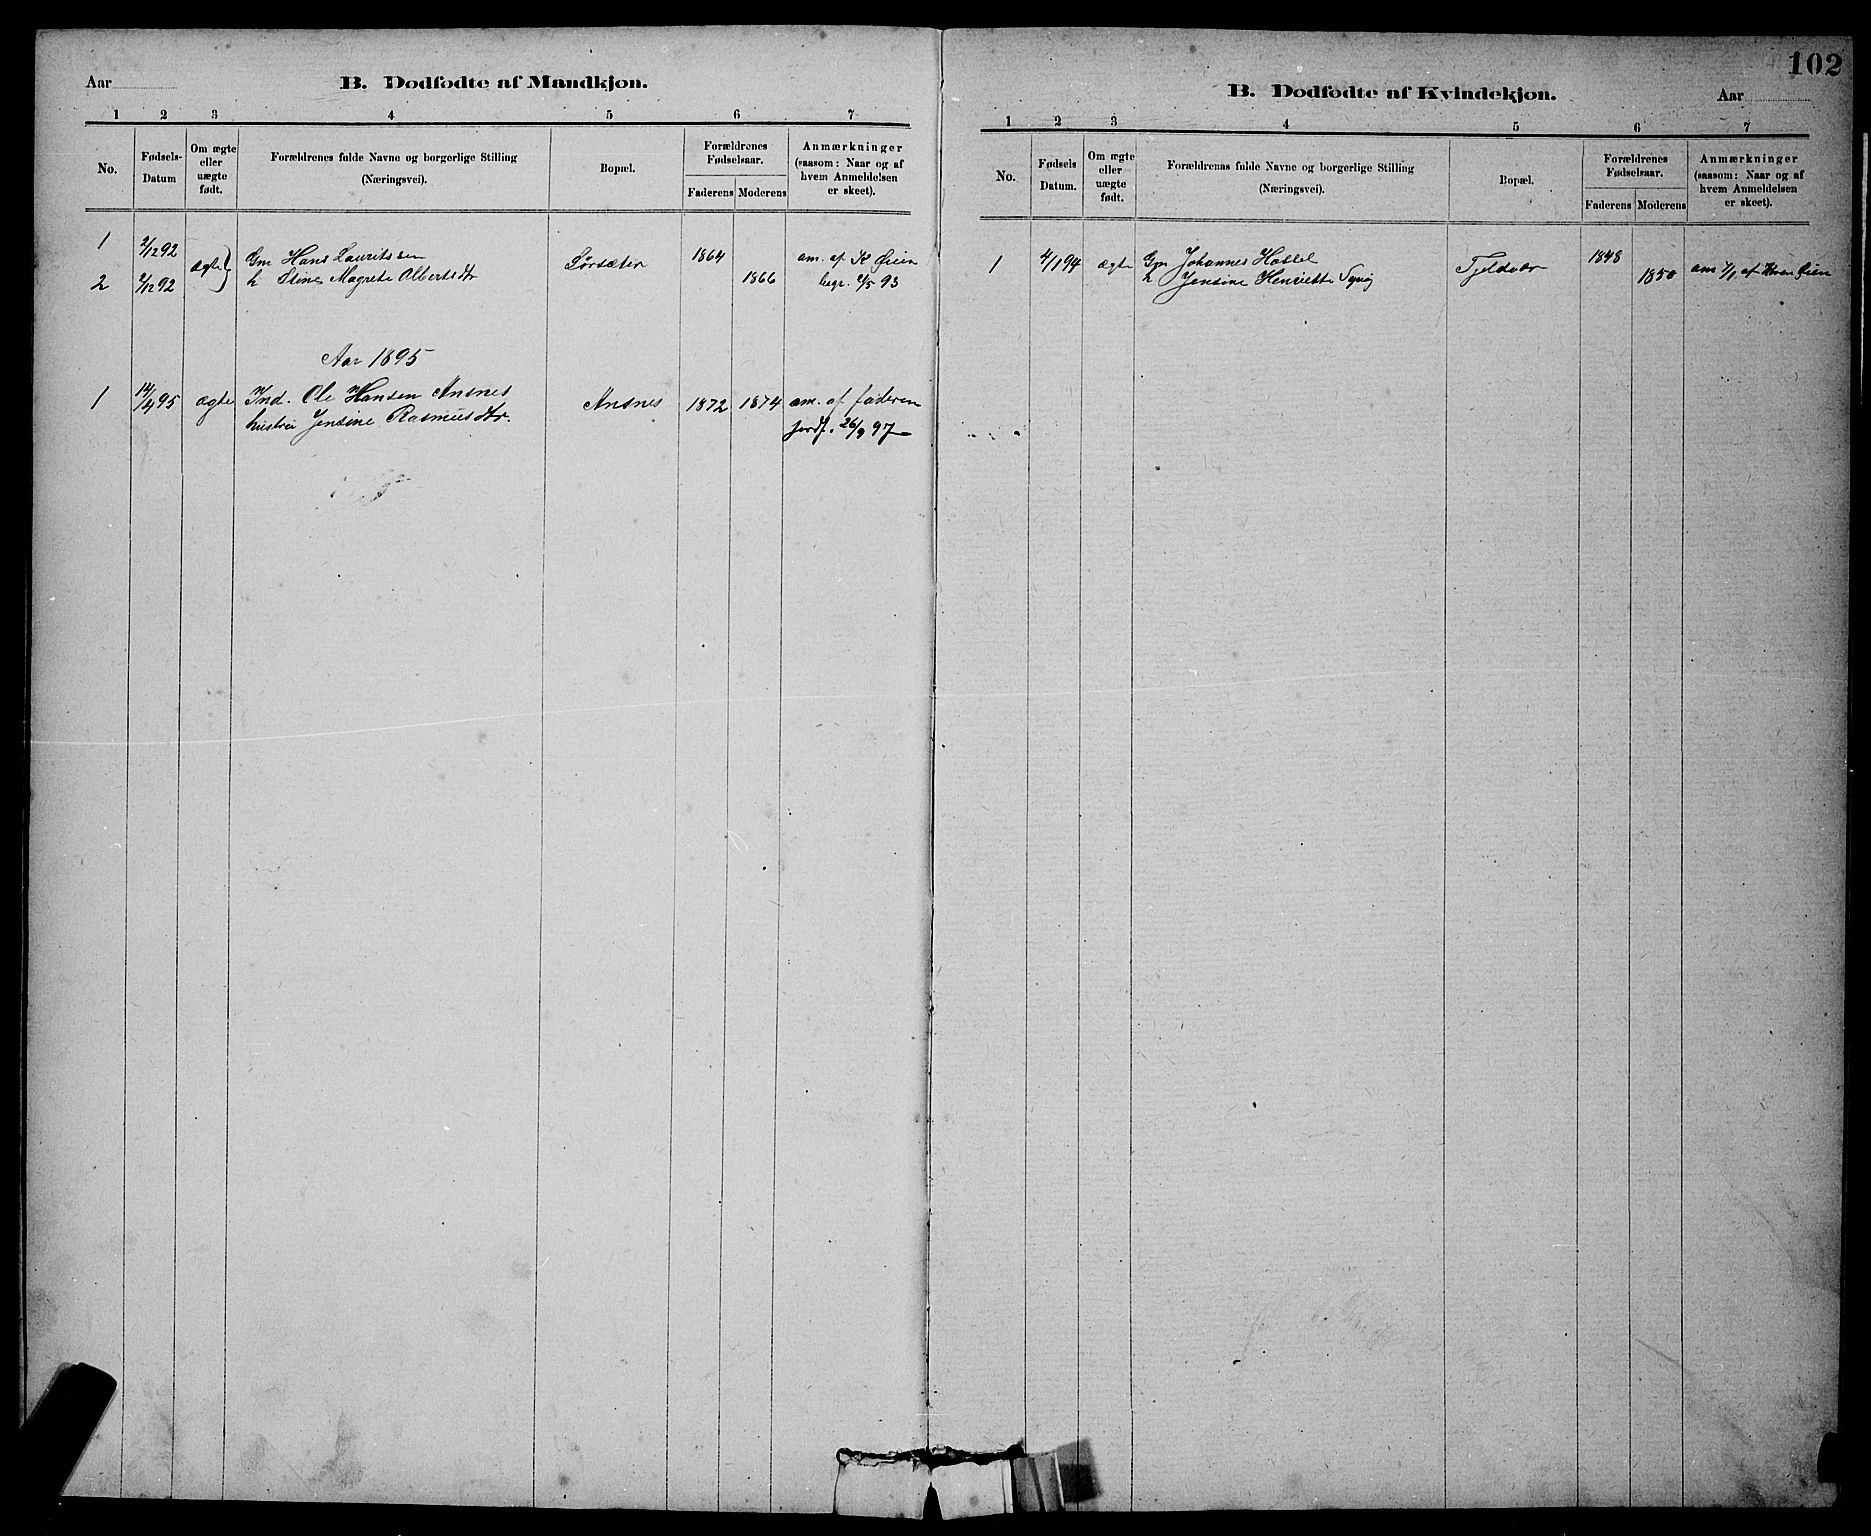 102
Aar
B. Dødfødte af Mandkjøn.
1 2 3 4 5 6 7
No.
Fødsels-
Datum
Om ægte
eller
uægte
født.
Forældrenes fulde Navne og borgerlige Stilling
(Næringsvei).
Bopæl.
Forældrenes
Fødselsaar.
Faderens Moderens
Anmærkninger
(saasom: Naar og af
hvem Anmeldelsen
er skeet).
1 2/12 92 ægte Gm Hans Lauritssen Sørsæter 1864 am. af K Øien
2 2/12 92 h Stine Magrete Albertsdtr 1866 begr. 2/5 93
Aar 1895
1 14/4 95 ægte Ind. Ole Hansen Ansnes Ansnes 1872 1874 am. af faderen
hustru Jensine Rasmusdtr. jordf. 26/9 97
B. Dødfødte af Kvindekjøn.
Aar
1 2 3 4 5 6 7
No.
Fødsels
Datum.
Om ægte
eller
uægte
født.
Forældrenas fulde Navne og borgerlige Stilling
(Næringsvei).
Bopæl.
Forældrenes
Fødselsaar.
Faderens Moderens
Anmærkninger
(saasom: Naar og af
hvem Anmeldelsen
er skeet).
1 4/1 94 ægte Gm Johannes Hassel Tjeldvær 1848
h Jensine Henriette 1850 am 7/1 af Øien